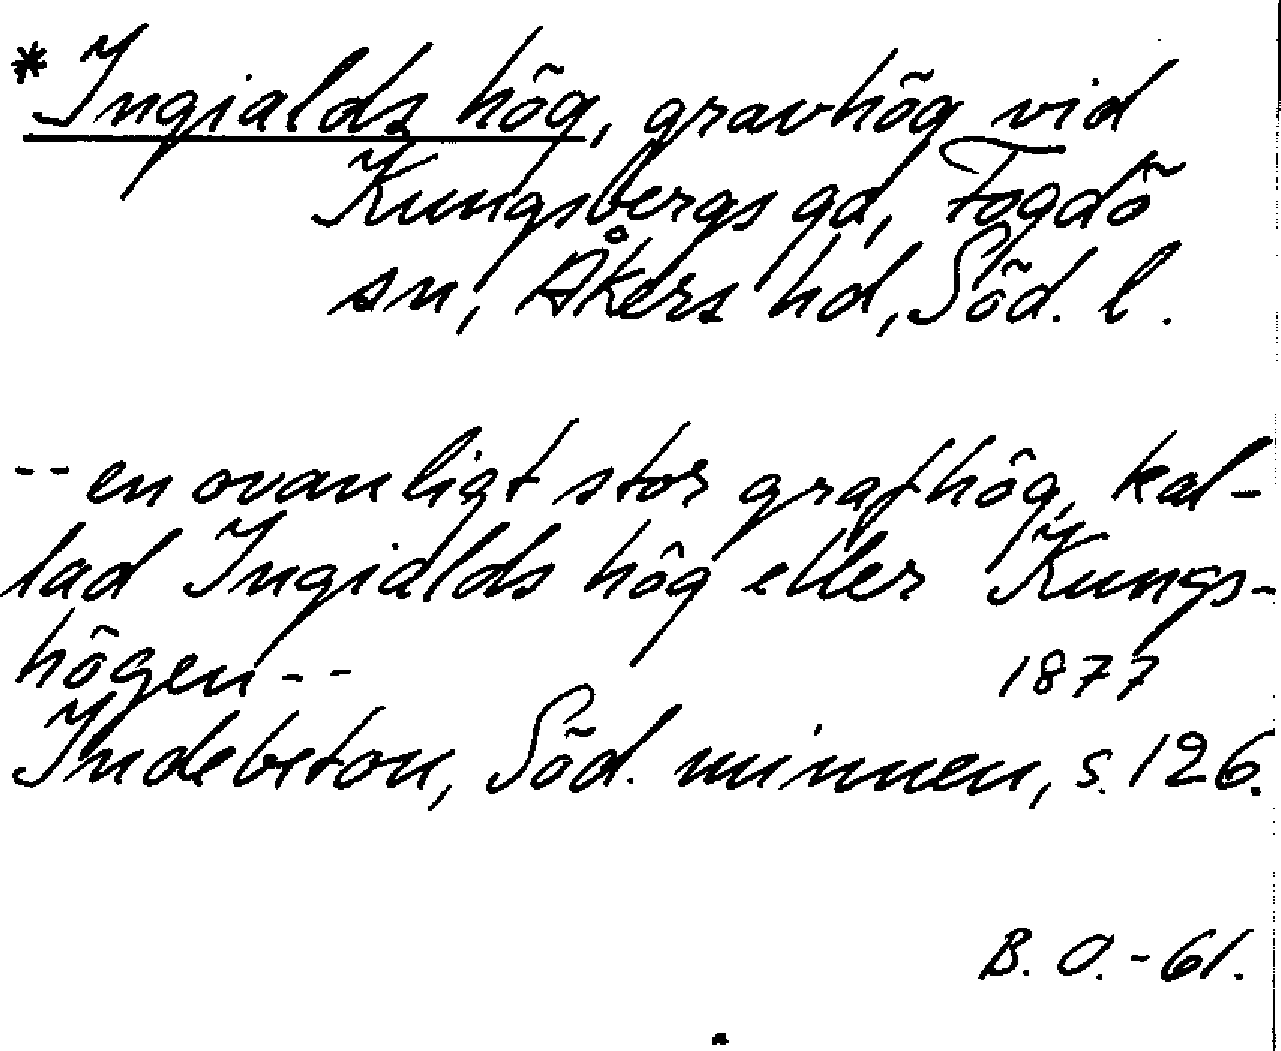 * Ingialds hög, gravhög vid
Kungsbergs gd, Fogdö
sn, Åkers hd, Söd. l.
-- en ovanligt stor grafhög, kal-
lad Ingialds hög eller Kungs-
högen -- 1877
Indebetou, Söd. minnen, s. 126.
B. O. - 61.